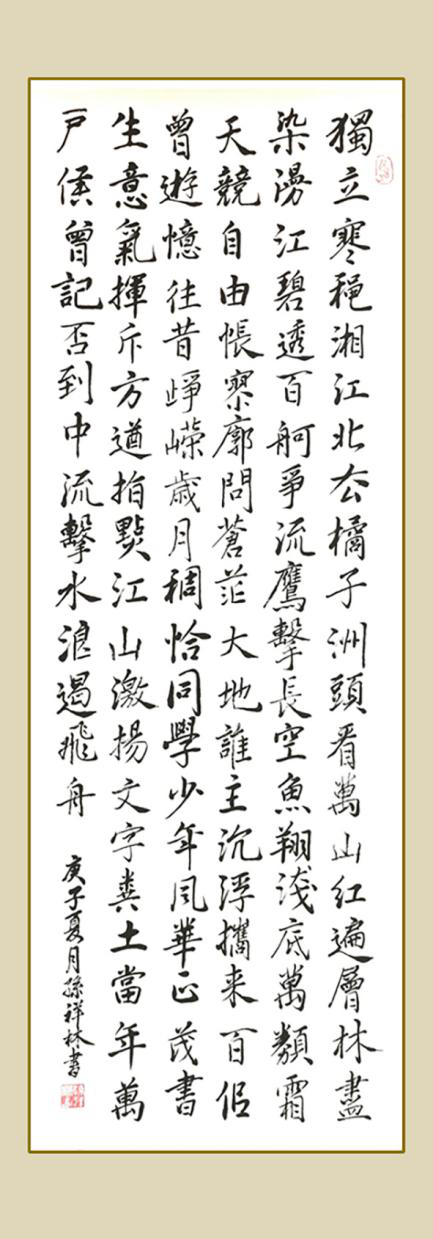 獨立寒穐湘江北去橘子洲頭看萬山紅遍層林盡
染漫江碧透百舸爭流鷹擊長空魚翔淺底萬類霜
天競自由悵寥廓問蒼茫大地誰主沉浮攜来百侣
曾遊憶往昔崢嶸歲月稠恰同學少年風華正茂書
生意氣揮斥方遒指點江山激揚文字糞土當年萬
戸侯曾記否到中流擊水浪遏飛舟
庚子夏月孫祥林書